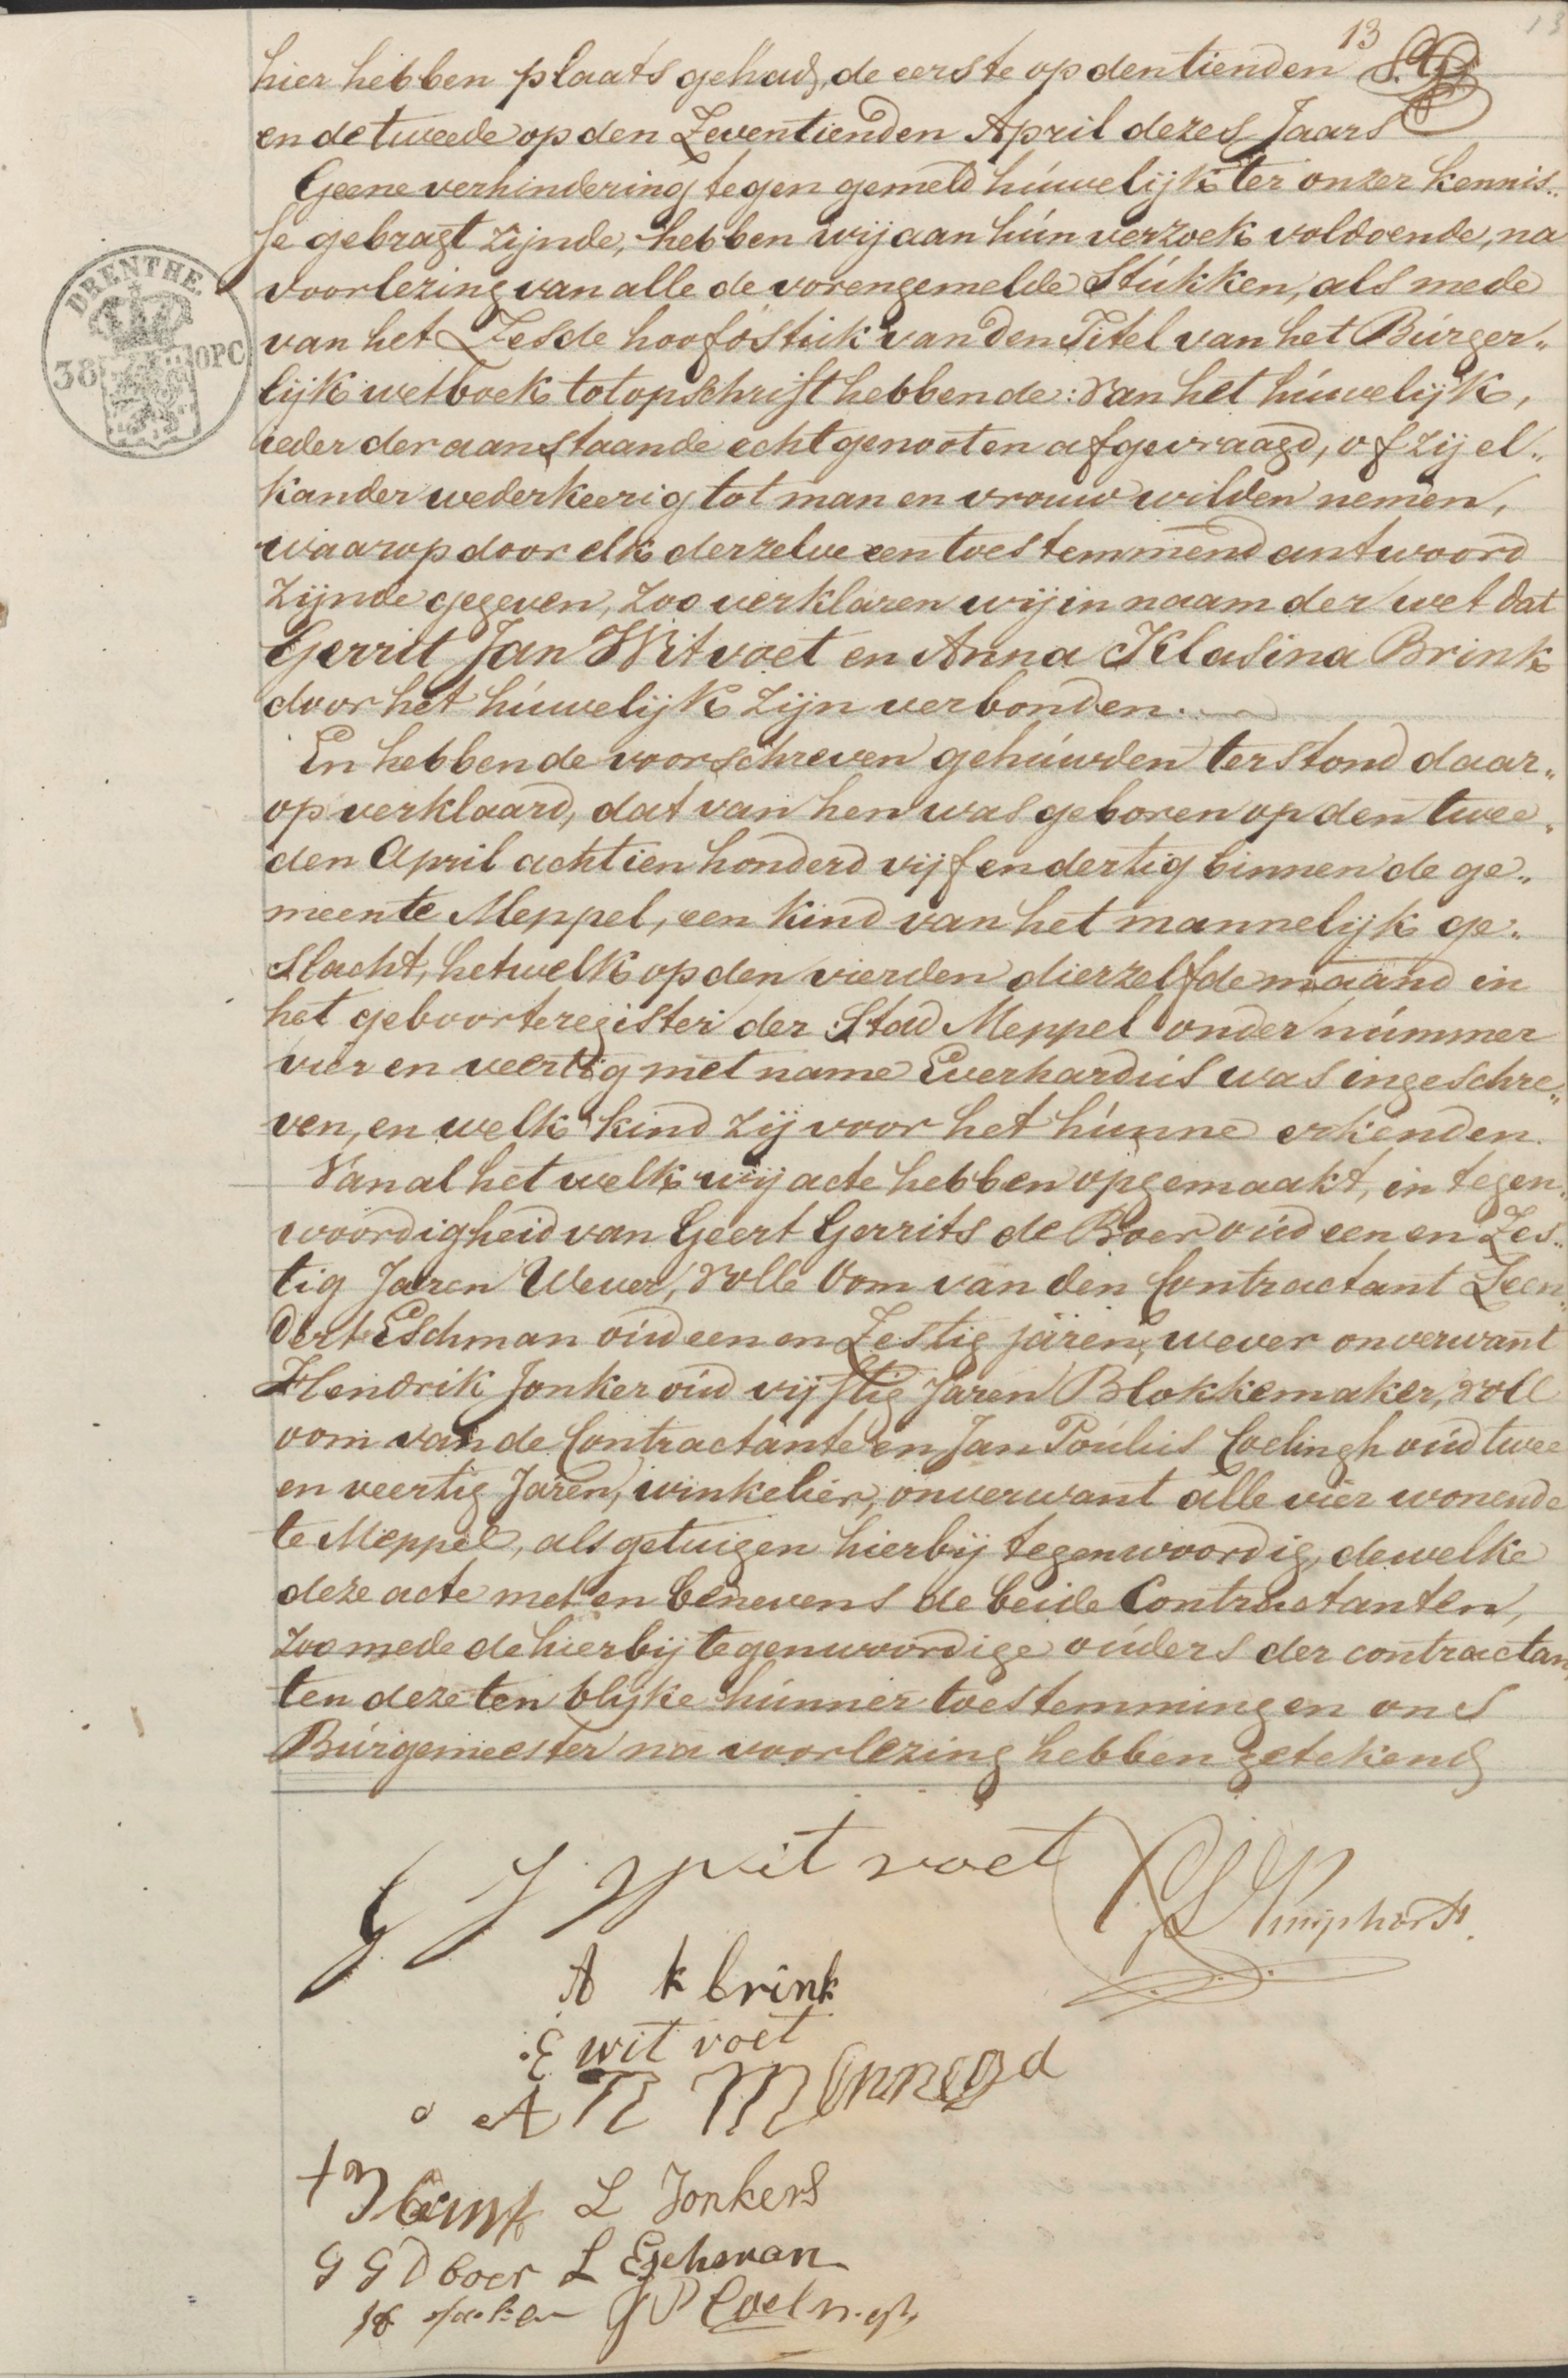 13
13
hier hebben plaats gehad, de eerste op den tienden
en de tweede op den Zeventienden April dezes Jaars
Geene verhindering tegen gemeld húwelijk ter onzer kennis„
se gebragt zijnde, hebben wij aan hún verzoek voldoende, na
voorlezing van alle de vorengemelde Stúkken, als mede
van het Zesde hoofdstuk van den Titel van het Búrger„
lijk wetboek tot opschrift hebbende: Van het húwelijk,
ieder der aanstaande echtgenooten afgevraagd, of zij el„
kander wederkeerig tot man en vrouw wilden nemen,
waarop door elk derzelve een toestemmend antwoord
zijnde gegeven, zoo verklaren wij in naam der wet dat
Gerrit Jan Witvoet en Anna Klasina Brink
door het húwelijk zijn verbonden.
En hebben de voorschreven gehúwden terstond daar„
op verklaard, dat van hen was geboren op den twee„
den April achtien honderd vijf en dertig binnen de ge„
meente Meppel, een kind van het mannelijk ge„
slacht, hetwelk op den vierden dierzelfde maand in
het geboorteregister der Stad Meppel onder númmer
vier en veertig met name Everhardús was ingeschre„
ven, en welk kind zij voor het húnne erkenden.
Van al het welk wij acte hebben opgemaakt, in tegen„
woordigheid van Geert Gerrits de Boer oúd een en Zes„
tig Jaren Wever, volle Oom van den Contractant Leen„
dert Eschman oúd een en Zestig jaren, wever onverwant
Hendrik Jonker oúd vijftig Jaren Blokkemaker, voll
oom van de Contractante en Jan Poúlús Coelingh oúd twee
en veertig Jaren, winkelier, onverwant alle vier wonende
te Meppel, als getuigen hierbij tegenwoordig, dewelke
deze acte met en benevens de beide Contractanten,
zoo mede de hierbij tegenwoordige oúders der contractan„
ten deze ten blijke húnner toestemming en ons
Búrgemeester na voorlezing hebben getekend
DRENTHE.
38 OPC
G J Wit voet
A k brink
E wit voet
A
L Jonkers
G G D boer L Eschman
J P Coelingh